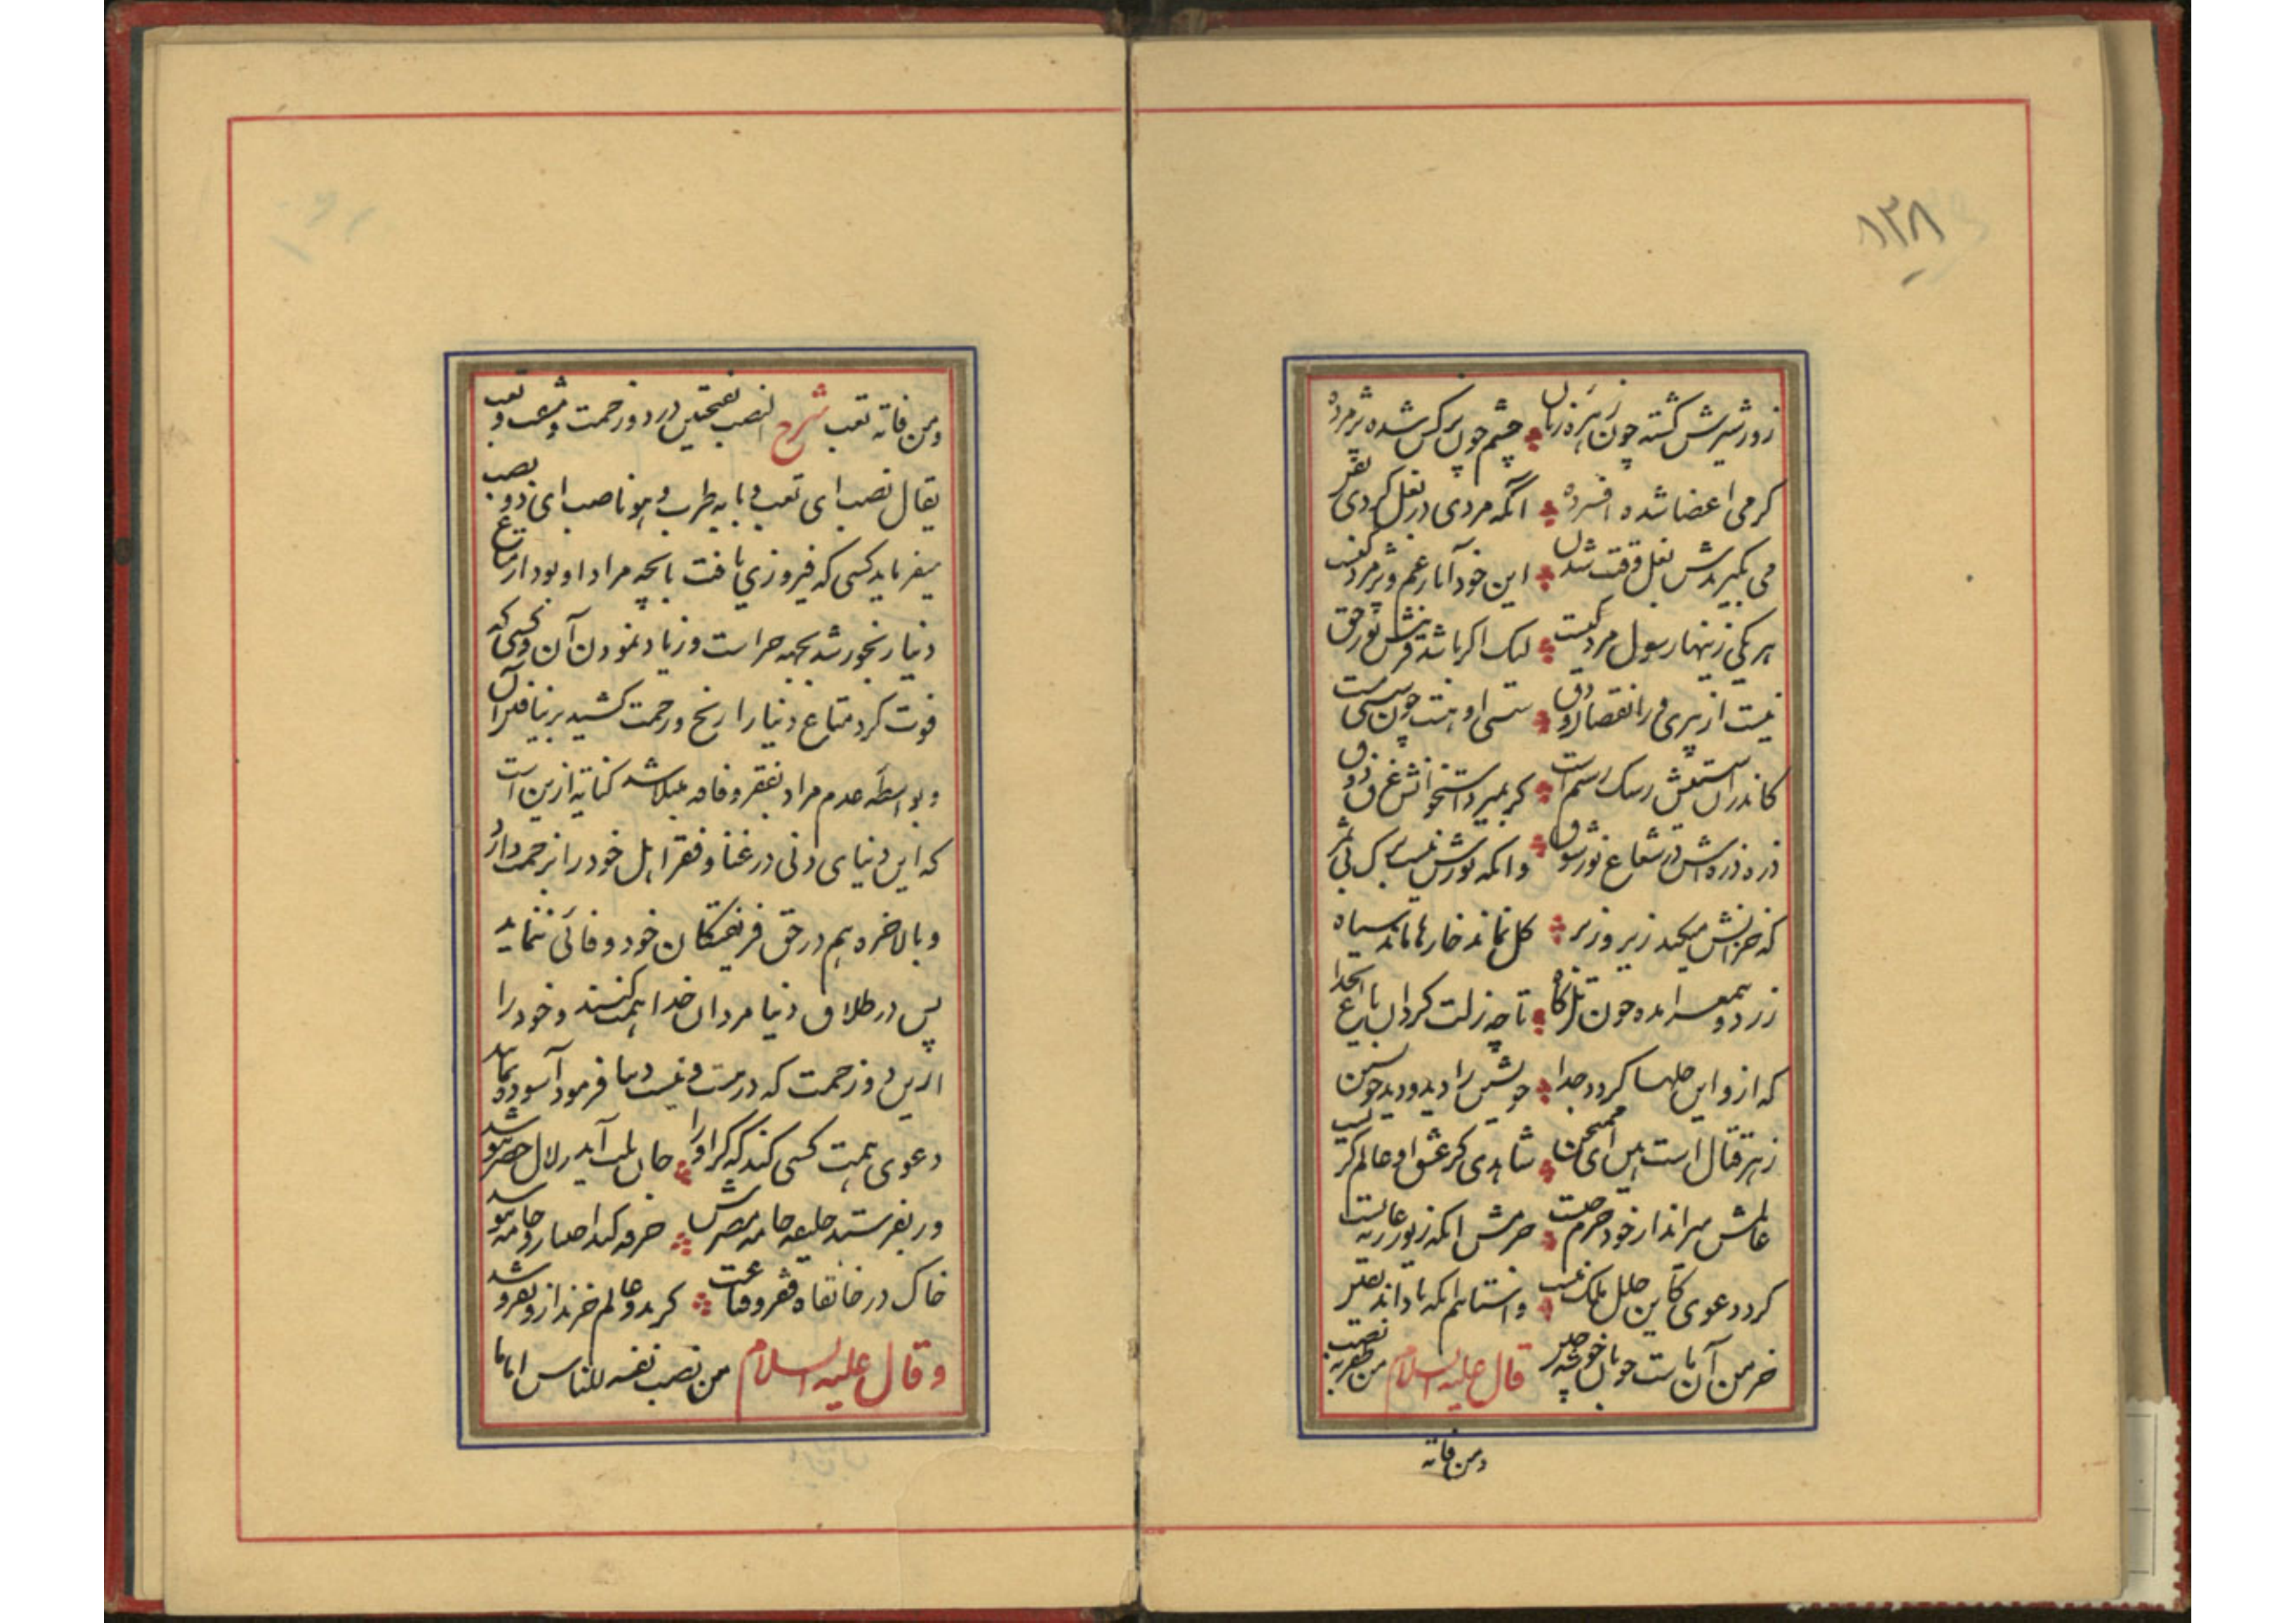 ۱۳۸
زور شیرش گشته چون زهره زنان چشم چون نرگس شده پژمرده
گرمی اعضا شده افسرده آنکه مردی در بغل کردی بفن
می بگیرندش بغل وقت شدن این خود آثار غم و پژمردگیست
هر یکی زینها رسول مردگیست لیک اگر باشد قرینش نور حق
نیست از پیری ورا نقصان و دق سستی او هست چون سستی مست
کاندران سستیش رشک رستم است گر بمیرد استخوانش غرق ذوق
ذره ذره‌اش در شعاع نور شوق وانکه نورش نیست برگ بی ثمر
که خزانش میکند زیر و زبر گل نماند خارها ماند سیاه
زرد و بیمغز آمده چون تل کاه تا چه زلت کرد آن باغ ایخدا
که ازو این حلها گردد جدا خویش را دید و دید خویشتن
زهر قتال است هین ای ممتحن شاهدی کز عشق او عالم گریست
عالمش میراند از خود جرم چیست جرمش آنکه زیور عاریه بست
کرد دعوی کاین حلل ملک منست واستانیم آنکه تا داند یقین
خرمن آن ماست خوبان خوشه چین قال علیه السلام من ظفر به نصب
ومن فاته
ومن فاته تعب شرح النصب بفتحتین درد و زحمت و مشقت و تعب
یقال نصب ای تعب و بابه طرب و هم ناصب ای ذو نصب
میفرماید کسی که فیروزی یافت بآنچه مراد او بود از متاع
دنیا رنجور شد بجهة حراست و زیاد نمودن آن و کسی که
فوت کرد متاع دنیا را رنج و زحمت کشید بر نیافتن آن
و بواسطه عدم مراد بفقر و فاقه مبتلا شد کنایه ازین است
که این دنیای دنی در غنا و فقر اهل خود را بزحمت دارد
و بالاخره هم در حق فریفتگان خود وفائی ننماید
پس در طلاق دنیا مردان خدا همت کنند و خود را
ازین دو زحمت که در هست و نیست دنیا فرمود آسوده نمایند
دعوی همت کسی کند که گر او را جان بلب آید زلال خضر ننوشد
ور بفرستد خلیفه جامه مصرش خرقه کند اختیار و جامه نپوشد
خاک در خانقاه فقر و قناعت گر بدو عالم خرند ازو نفروشد
وقال علیه السلام من نصب نفسه للناس اماما